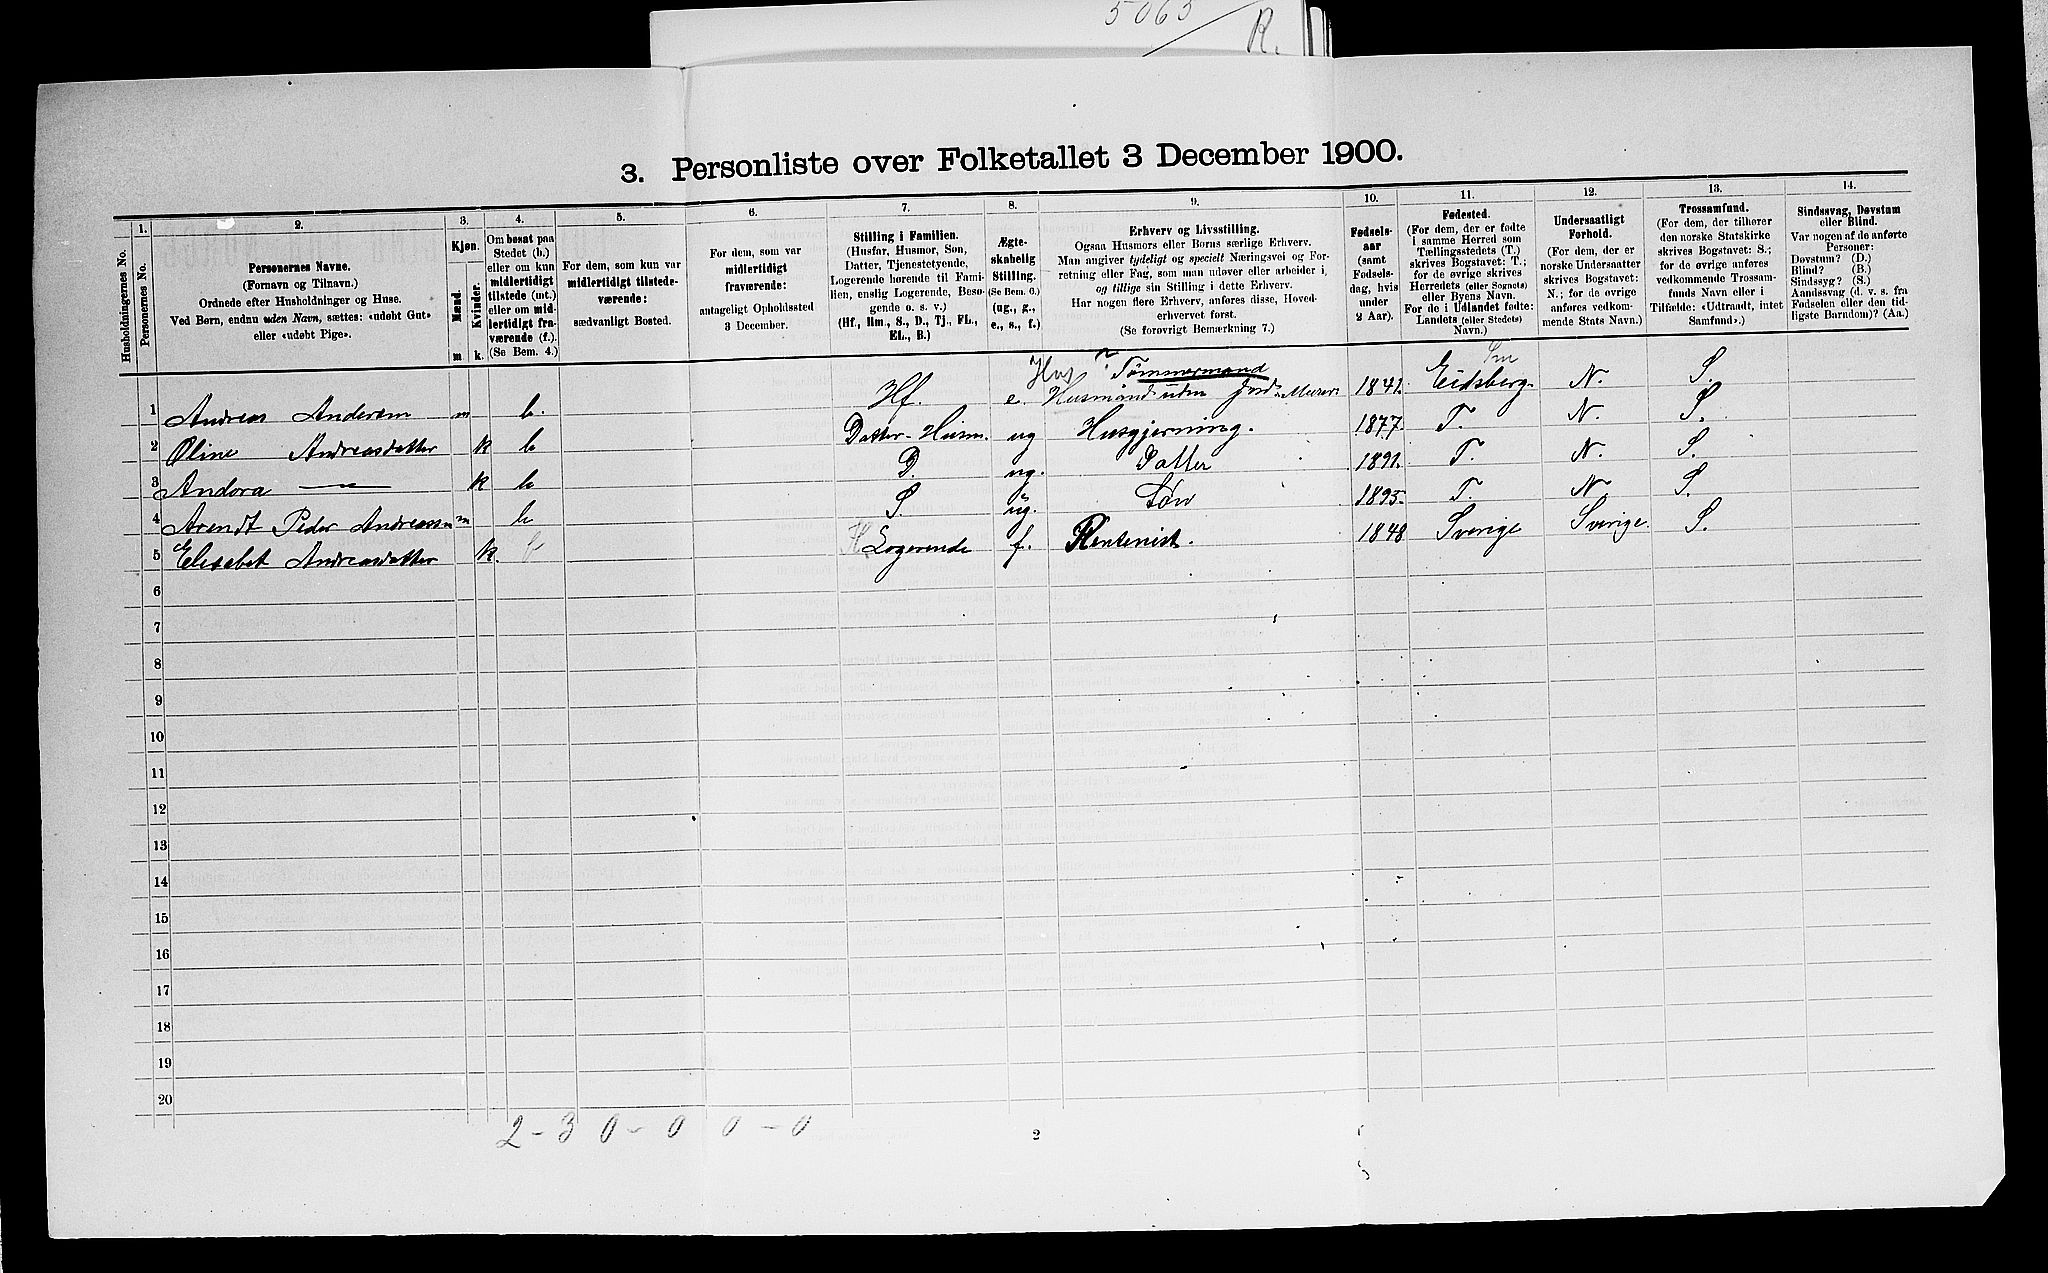 5063
R.
3. Personliste over Folketallet 3 December 1900.
1. 2. 3. 4. 5. 6. 7. 8. 9. 10. 11. 12. 13. 14.
Husholdningernes No.
Personernes No.
Personernes Navne.
(Fornavn og Tilnavn.)
Ordnede efter Husholdninger og Huse.
Ved Børn, endnu uden Navn, sættes: «udøbt Gut»
eller «udøbt Pige».
Kjøn.
Mænd.
Kvinder.
m k.
Om bosat paa
Stedet (b.)
eller om kun
midlertidigt
tilstede (mt.)
eller om mid-
lertidigt fra-
værende (f.).
(Se Bem. 4.)
For dem, som kun var
midlertidigt tilstede-
værende:
sædvanligt Bosted.
For dem, som var
midlertidigt
fraværende:
antageligt Opholdssted
3 December.
Stilling i Familien.
(Husfar, Husmor, Søn,
Datter, Tjenestetyende,
Logerende hørende til Fami-
lien, enslig Logerende, Besø-
gende o. s. v.)
(Hf., Hm., S., D., Tj., FL.,
EL., B.)
Ægte-
skabelig
Stilling.
(Se Bem. 6.)
(ug., g.,
e., s., f.)
Erhverv og Livsstilling.
Ogsaa Husmors eller Børns særlige Erhverv.
Man angiver tydeligt og specielt Næringsvei og For-
retning eller Fag, som man udøver eller arbeider i,
og tillige sin Stilling i dette Erhverv.
Har nogen flere Erhverv, anføres disse, Hoved-
erhvervet først.
(Se forøvrigt Bemærkning 7.)
Fødsels-
aar
(samt
Fødsels-
dag, hvis
under
2 Aar).
Fødested.
(For dem, der er fødte
i samme Herred som
Tællingsstedets (T.)
skrives Bogstavet: T.;
for de øvrige skrives
Herredets (eller Sognets)
eller Byens Navn.
For de i Udlandet fødte:
Landets (eller Stedets)
Navn.)
Undersaatligt
Forhold.
(For dem, der er
norske Undersaatter
skrives Bogstavet:
N.; for de øvrige
anføres vedkom-
mende Stats Navn.)
Trossamfund.
(For dem, der tilhører
den norske Statskirke
skrives Bogstavet: S.;
for de øvrige anføres
vedkommende Trossam-
funds Navn eller i
Tilfælde: «Udtraadt, intet
Samfund».)
Sindssvag, Døvstum
eller Blind.
Var nogen af de anførte
Personer:
Døvstum? (D.)
Blind? (B.)
Sindssyg? (S.)
Aandssvag (d. v. s. fra
Fødselen eller den tid-
ligste Barndom)? (Aa.)
Hus Tømmermand Sm
1 Andreas Andersen m b. Hf. e. Husmand uden Jord. Murer. 1841. Eidsberg. N. S.
2 Oline Andreasdatter k b Datter-Husm. ug Husgjerning. 1877. T. N. S.
3 Andora — k b D. ug. Datter 1891. T. N. S.
4 Arendt Peder Andreassen m b S. ug. Søn 1895. T. N S.
5 Elisabet Andreasdatter k. b Logerende f. Rentenist. 1848 Sverige Sverige. S.
6
7
8
9
10
11
12
13
14
15
16
17
18
19
20
2 - 3 0 - 0 0 - 0
2